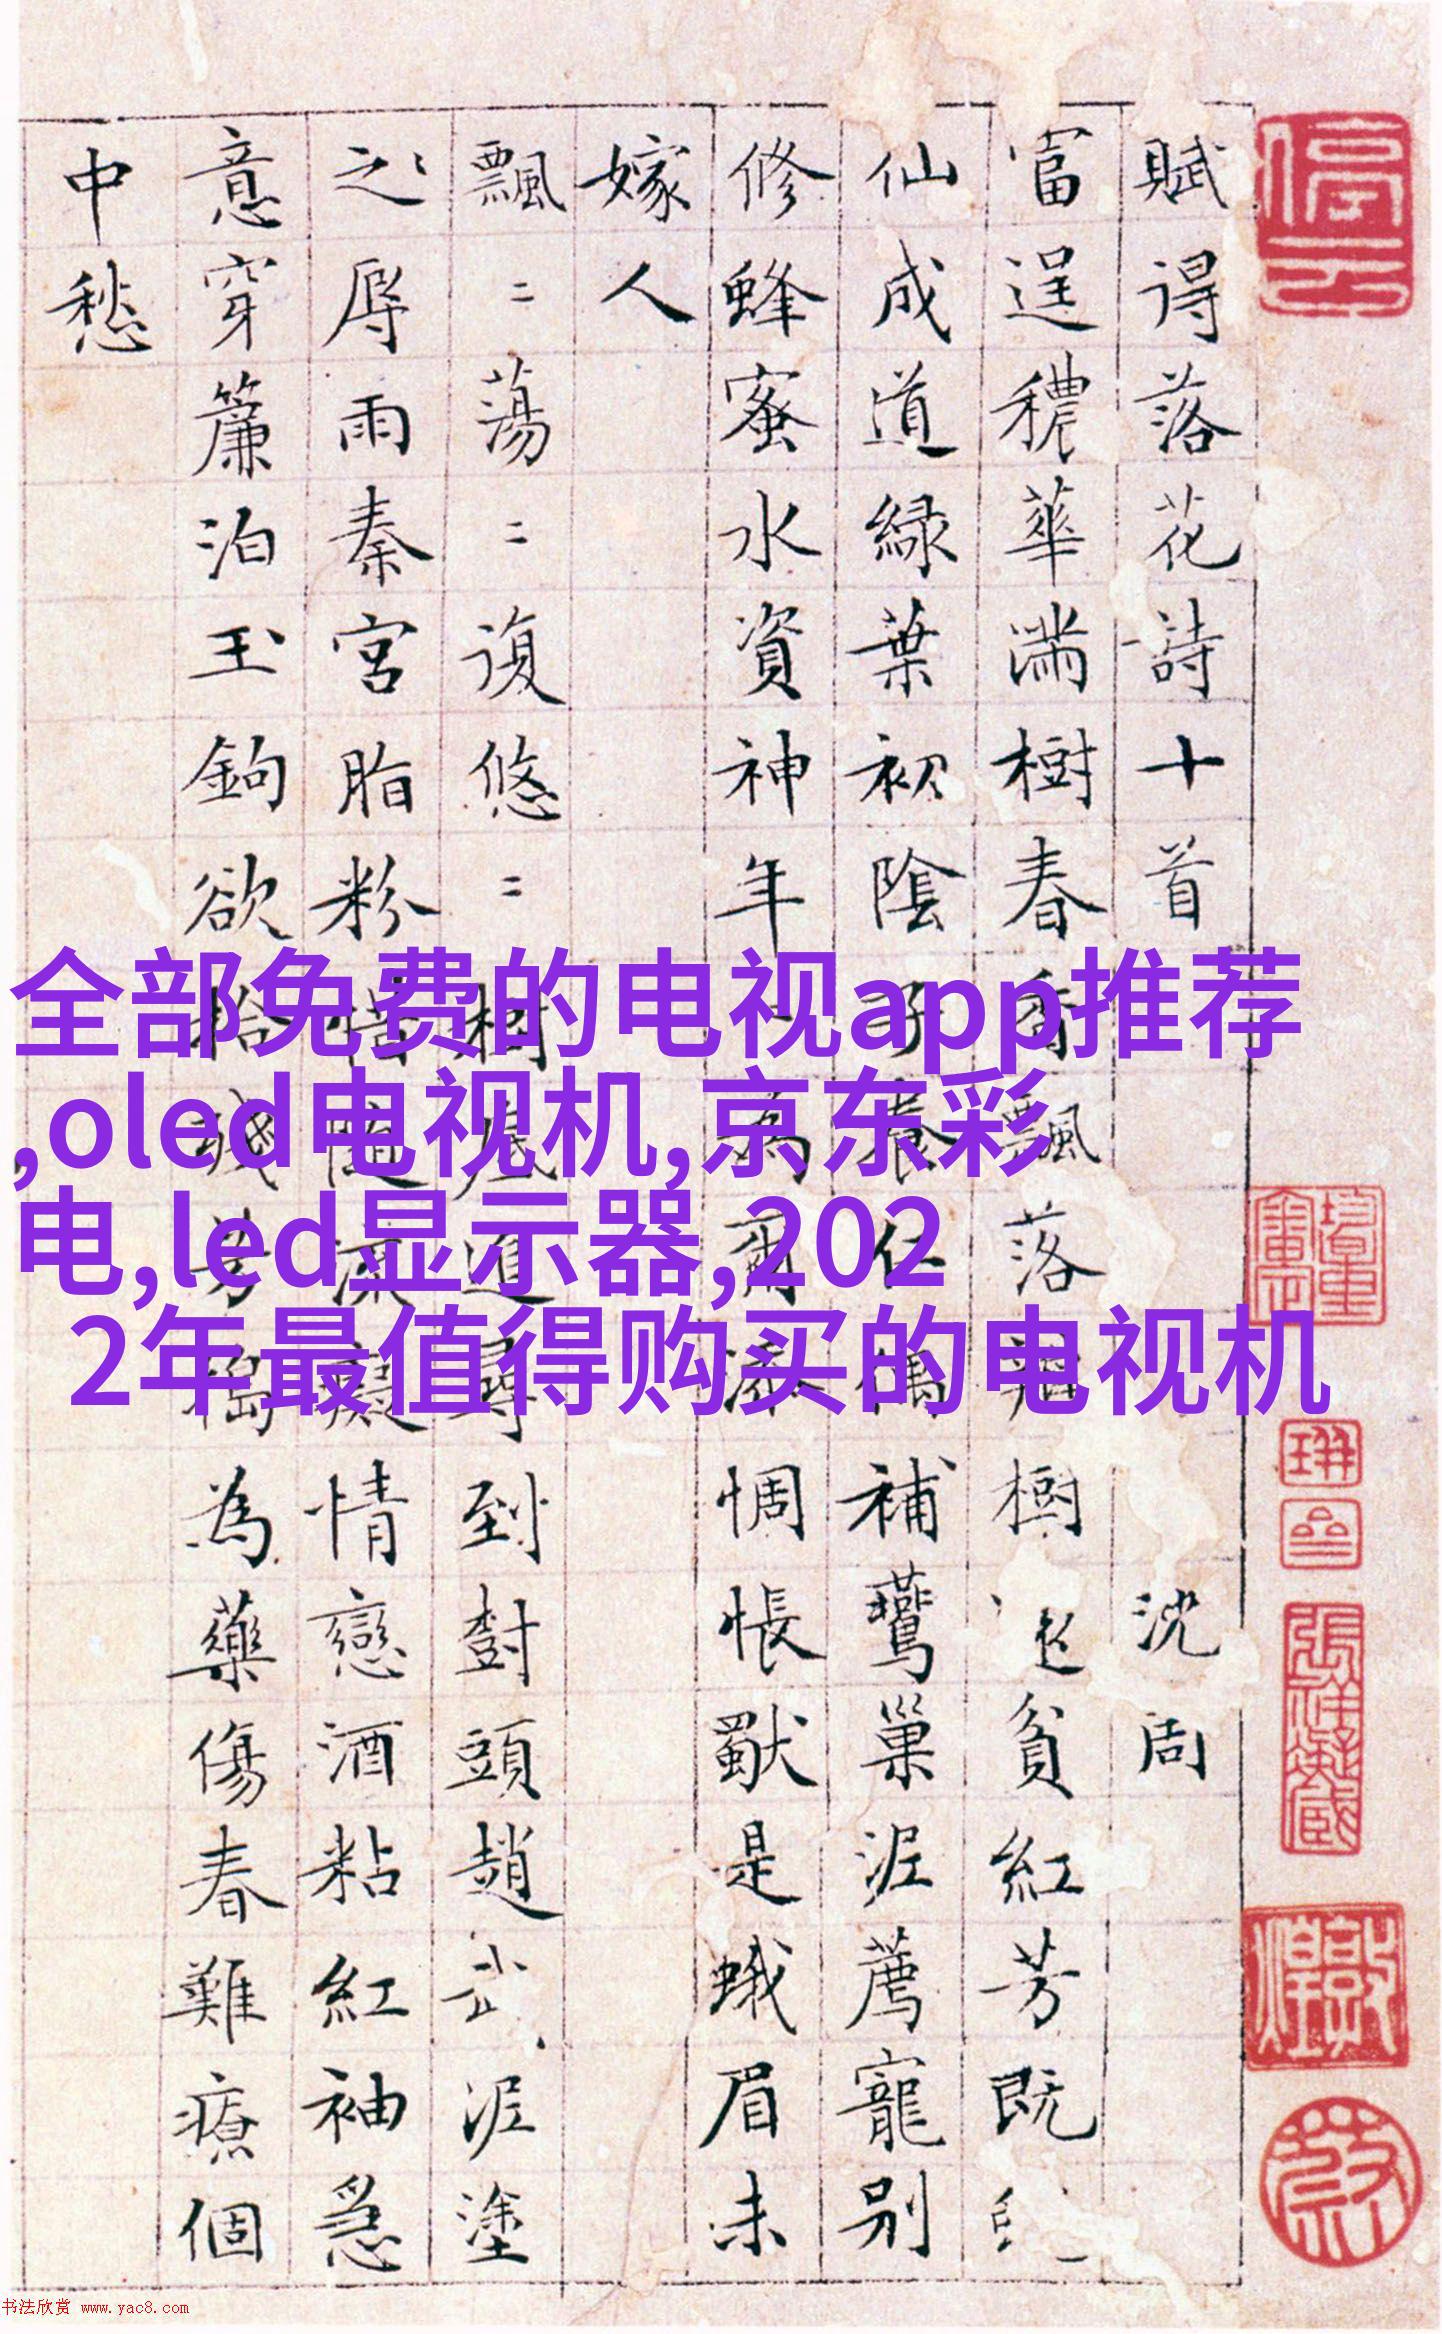 賦得落花詩十首 沈周
富逞穠華滿樹春香飄落瓣樹貧紅芳既
仙成道綠葉初陰子養仁偶補鶯巢泥薦寵別
修蜂蜜水資神年為爾添惆悵獸是蛾眉未
嫁人
飄〻蕩〻復悠〻樹底追尋到樹頭趙武泥塗
之辱雨秦宮脂粉惜隨流癡情戀酒粘紅袖急
意穿簾泊玉鉤欲拾殘芳搗為藥傷春難療個
中愁
全部免费的电视app推荐
,oled电视机,京东彩
电,led显示器,202
2年最值得购买的电视机
书法欣赏 www.yac8.com